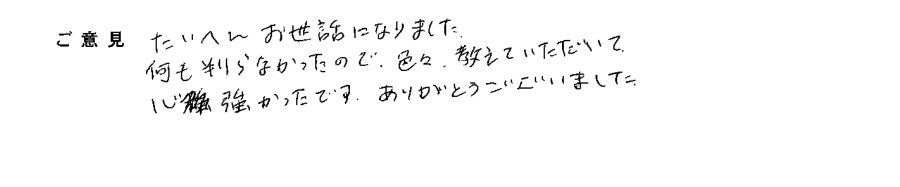 ご意見 たいへん お世話になりました.
何も判らなかったので、色々、教えていただいて、
心強かったです. ありがとうございいました.